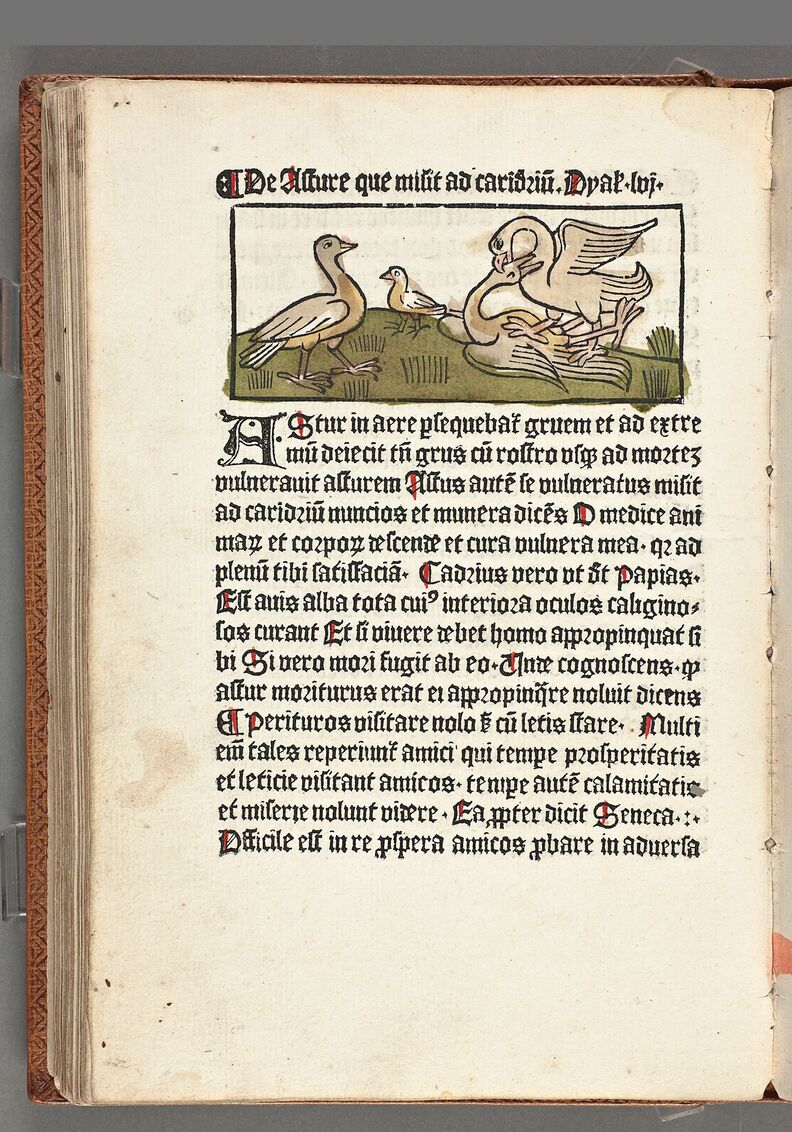 ¶ De Asture que misit ad caridriū. Dyal̄. lvj.
AStur in aere ꝑsequebat᷑ gruem et ad extre
mū deiecit tn̄ grus cū rostro vsqꝫ ad mortez
vulnerauit asturem Astus autē se vulneratus misit
ad caridriū nuncios et munera dicēs O medice ani
maꝝ et corpoꝝ descende et cura vulnera mea. qꝛ ad
plenū tibi satisfaciā. Cadrius vero vt d̄t Papias.
Est auis alba tota cuiꝰ interiora oculos caligino⸗
sos curant Et si viuere debet homo appropinquat si
bi Si vero mori fugit ab eo. Unde cognoscens. ꝙ
astur moriturus erat ei appropinq̄re noluit dicens
¶ Perituros visitare nolo sꝫ cū letis stare. Multi
em̄ tales reperiunt᷑ amici qui tempe prosperitatis
et leticie visitant amicos. tempe autē calamitatis
et miserie nolunt videre. Ea ꝓpter dicit Seneca.:.
Difficile est in re ꝓspera amicos ꝓbare in aduersa